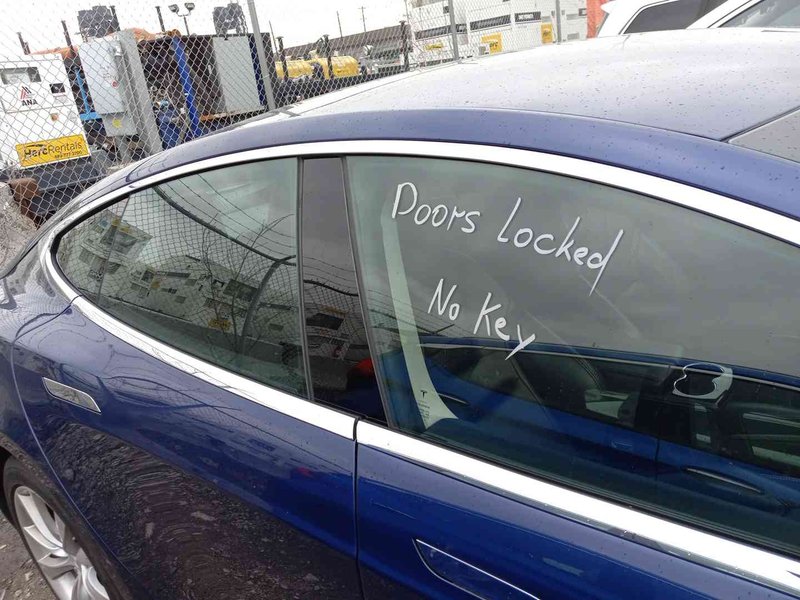 ANA
HercRentals
Doors Locked
No Key